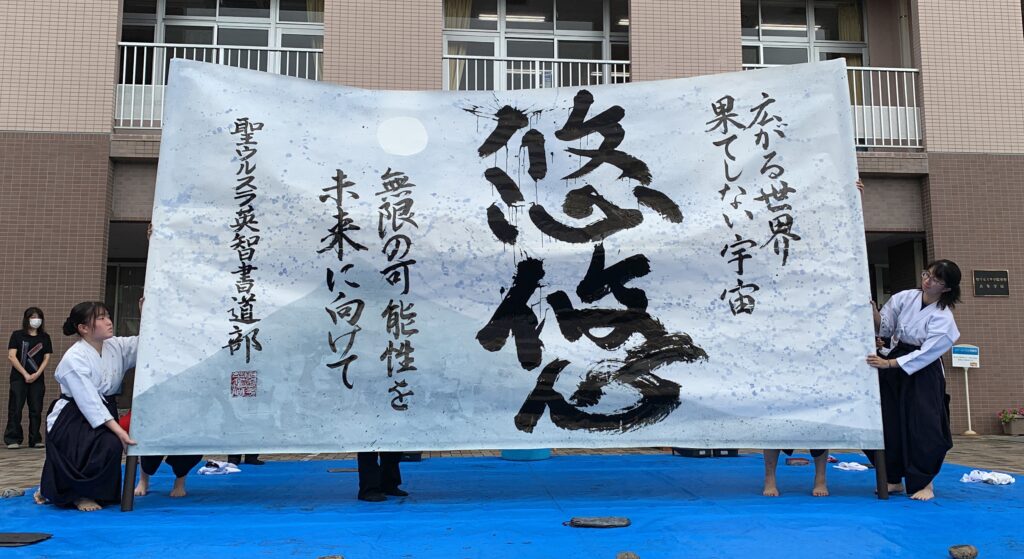 広がる世界
果てしない宇宙
悠悠
無限の可能性を
未来に向けて
聖ウルスラ英智書道部